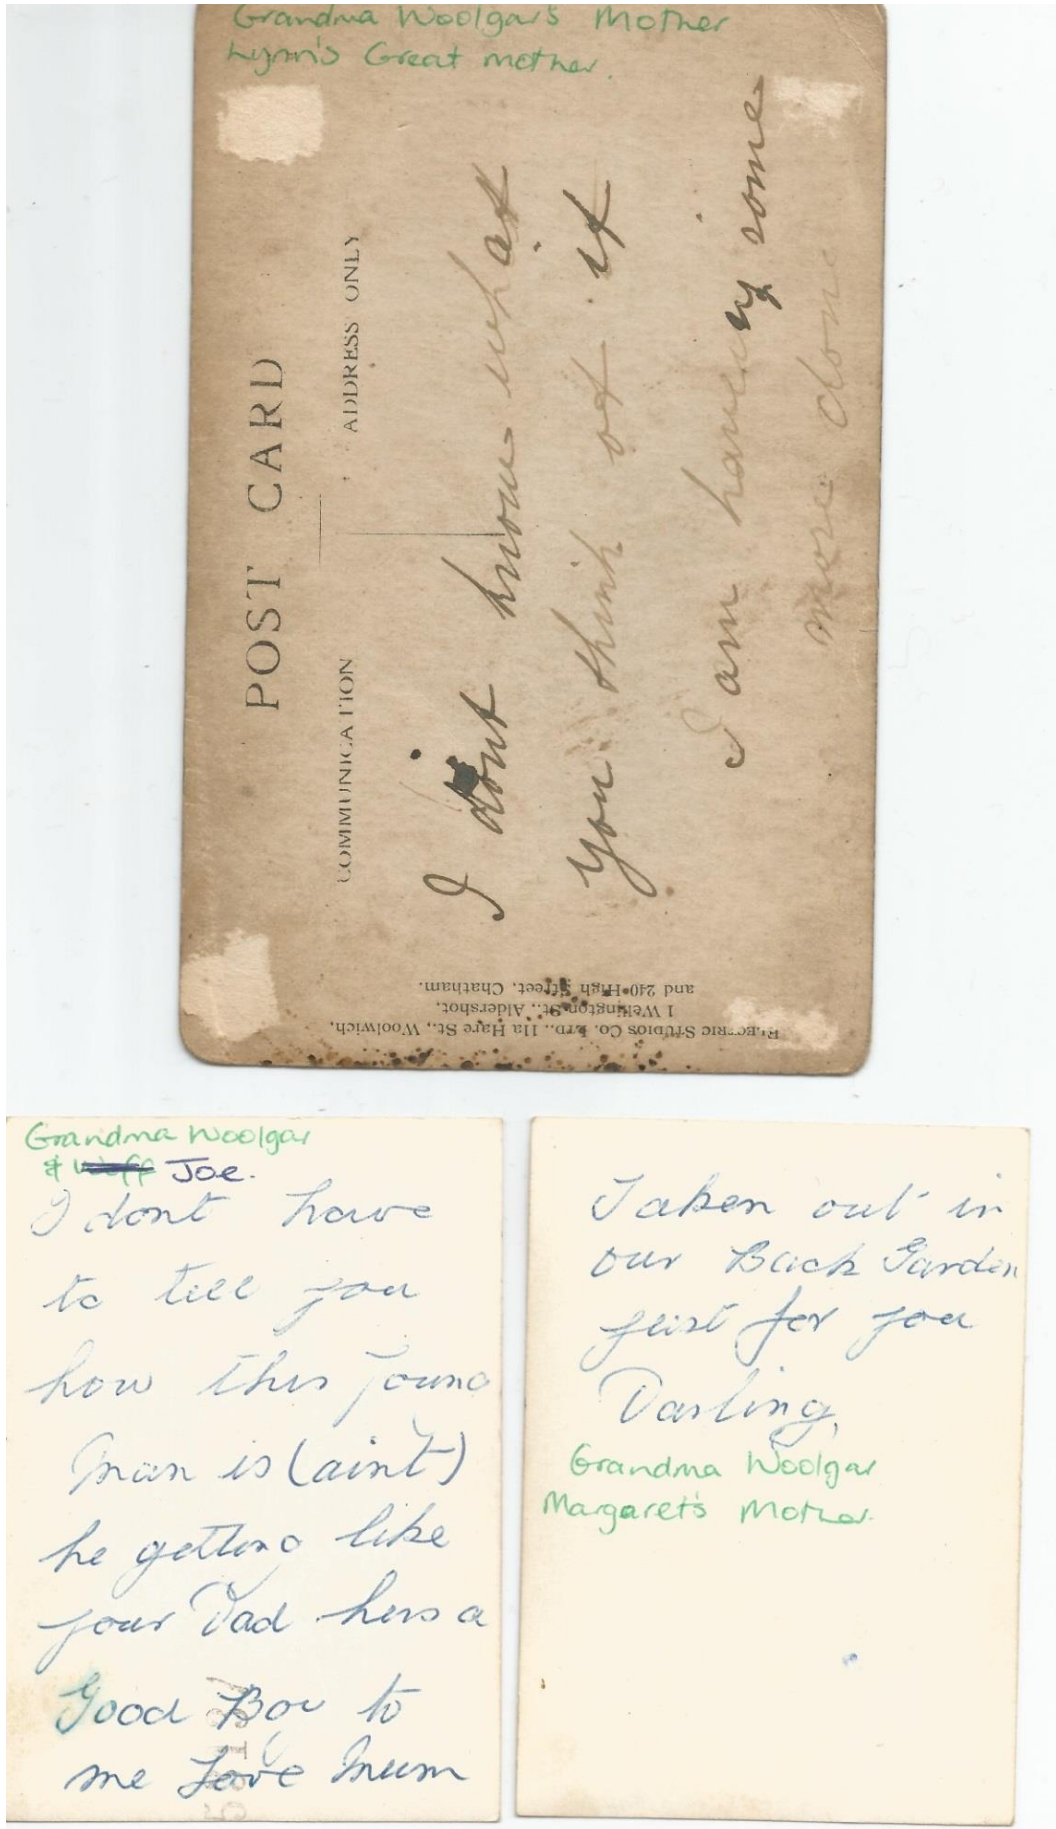 Grandma Woolgar's Mother
Lynn's Great mother.
POST CARD
COMMUNICATION
ADDRESS ONLY
I dont know what
you think of it
I am haveing some
more done
ELECTRIC STUDIOS CO. LTD., 11a Hare St., Woolwich,
1 Wellington St., Aldershot.
and 240 High Street, Chatham.
Grandma Woolgar
& Joe.
I dont have
to tell you
how this young
man is (aint)
he getting like
your Dad hes a
Good Boy to
me Love Mum
Taken out in
our Back Garden
just for you
Darling,
Grandma Woolgar
Margaret's Mother.